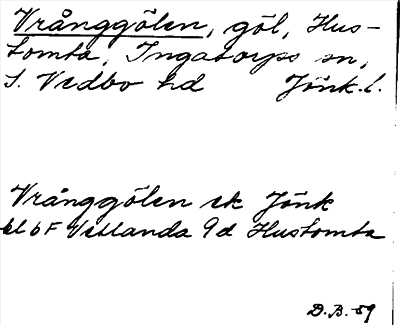 Vrånggölen, göl, Hus-
tomta, Ingatorps sn,
S. Vedbo hd Jönk. l.
Vrånggölen ek Jönk
bl 6F Vetlanda 9d Hustomta
D.B. -59